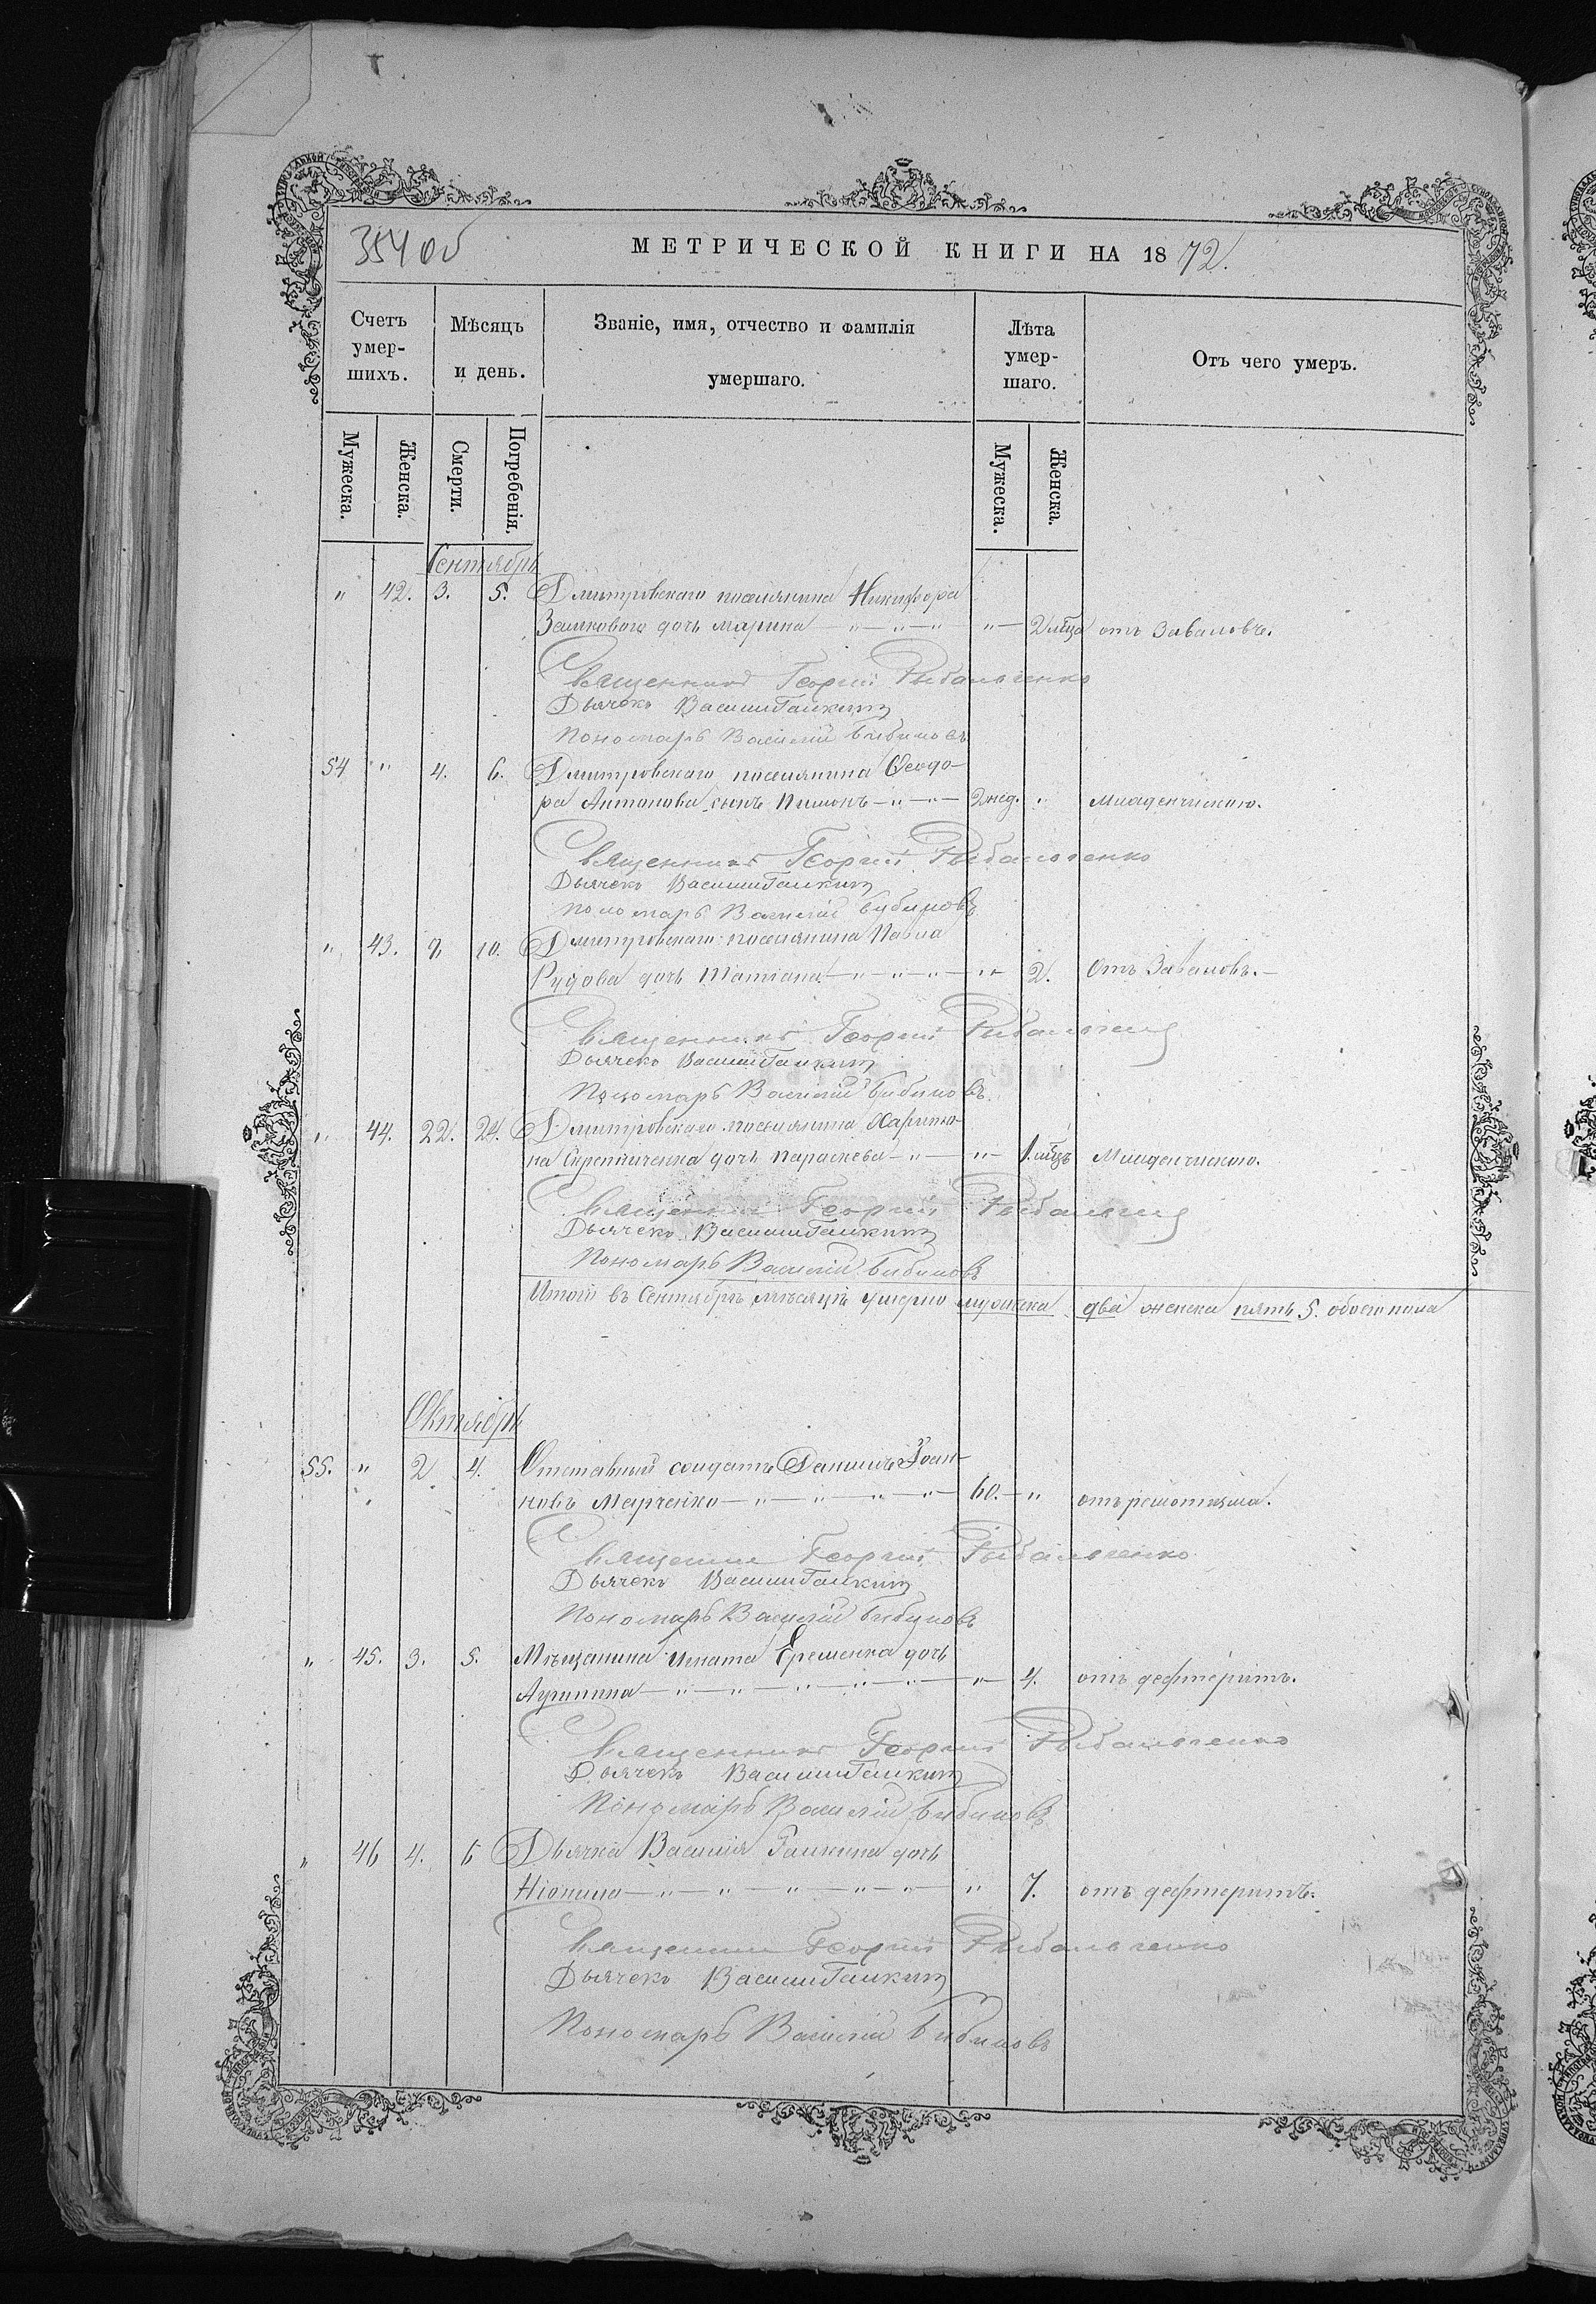 354 об
МЕТРИЧЕСКОЙ КНИГИ НА 1872.
Счетъ умер-шихъ.
Мѣсяцъ и день.
Званіе, имя, отчество и фамилія умершаго.
Лѣта умер-шаго.
Отъ чего умеръ.
Мужеска.
Женска.
Смерти.
Погребенія.
Мужеска.
Женска.
Сентябрь
" 42. 3. 5. Дмитровскаго поселянина Никифора
дочь Марина " 2 мѣца отъ Заваловъ.
Священникъ Георгій Рыбальченко
Дьячекъ Василій Галкинъ
Пономарь Василій Бибиковъ
54 " 4. 6. Дмитровскаго поселянина Ѳеодо-
ра Антонова сынъ Пименъ 2 нед. " Младенческою.
Священникъ Георгій Рыбальченко
Дьячекъ Василій Галкинъ
Пономарь Василій Бибиковъ
" 43. 10. Дмитровскаго поселянина Павла
Рудова дочь Татіана " 2. Отъ Заваловъ.
Священникъ Георгій Рыбальченко
Дьячекъ Василій Галкинъ
Пономарь Василій Бибиковъ
" 44. 22. 24. Дмитровскаго поселянина Харито-
на дочь Параскева " 1 мѣцъ Младенческою.
Священникъ Георгій Рыбальченко
Дьячекъ Василій Галкинъ
Пономарь Василій Бибиковъ
Итого въ Сентябрѣ мѣсяцѣ умерло мужеска два женска пять 5. обоего пола
Октябрь
55. " 2 4. Отставный солдатъ Даниилъ Іоан-
новъ Марченко 60. " отъ ревматизма.
Священникъ Георгій Рыбальченко
Дьячекъ Василій Галкинъ
Пономарь Василій Бибиковъ
" 45. 3. 5. Мѣщанина Игната Еременка дочь
" 4. отъ дефтеритъ.
Священникъ Георгій Рыбальченко
Дьячекъ Василій Галкинъ
Пономарь Василій Бибиковъ
" 46 4. 6 Дьячка Василія Галкина дочь
Ніонила " 7. отъ дефтеритъ.
Священникъ Георгій Рыбальченко
Дьячекъ Василій Галкинъ
Пономарь Василій Бибиковъ